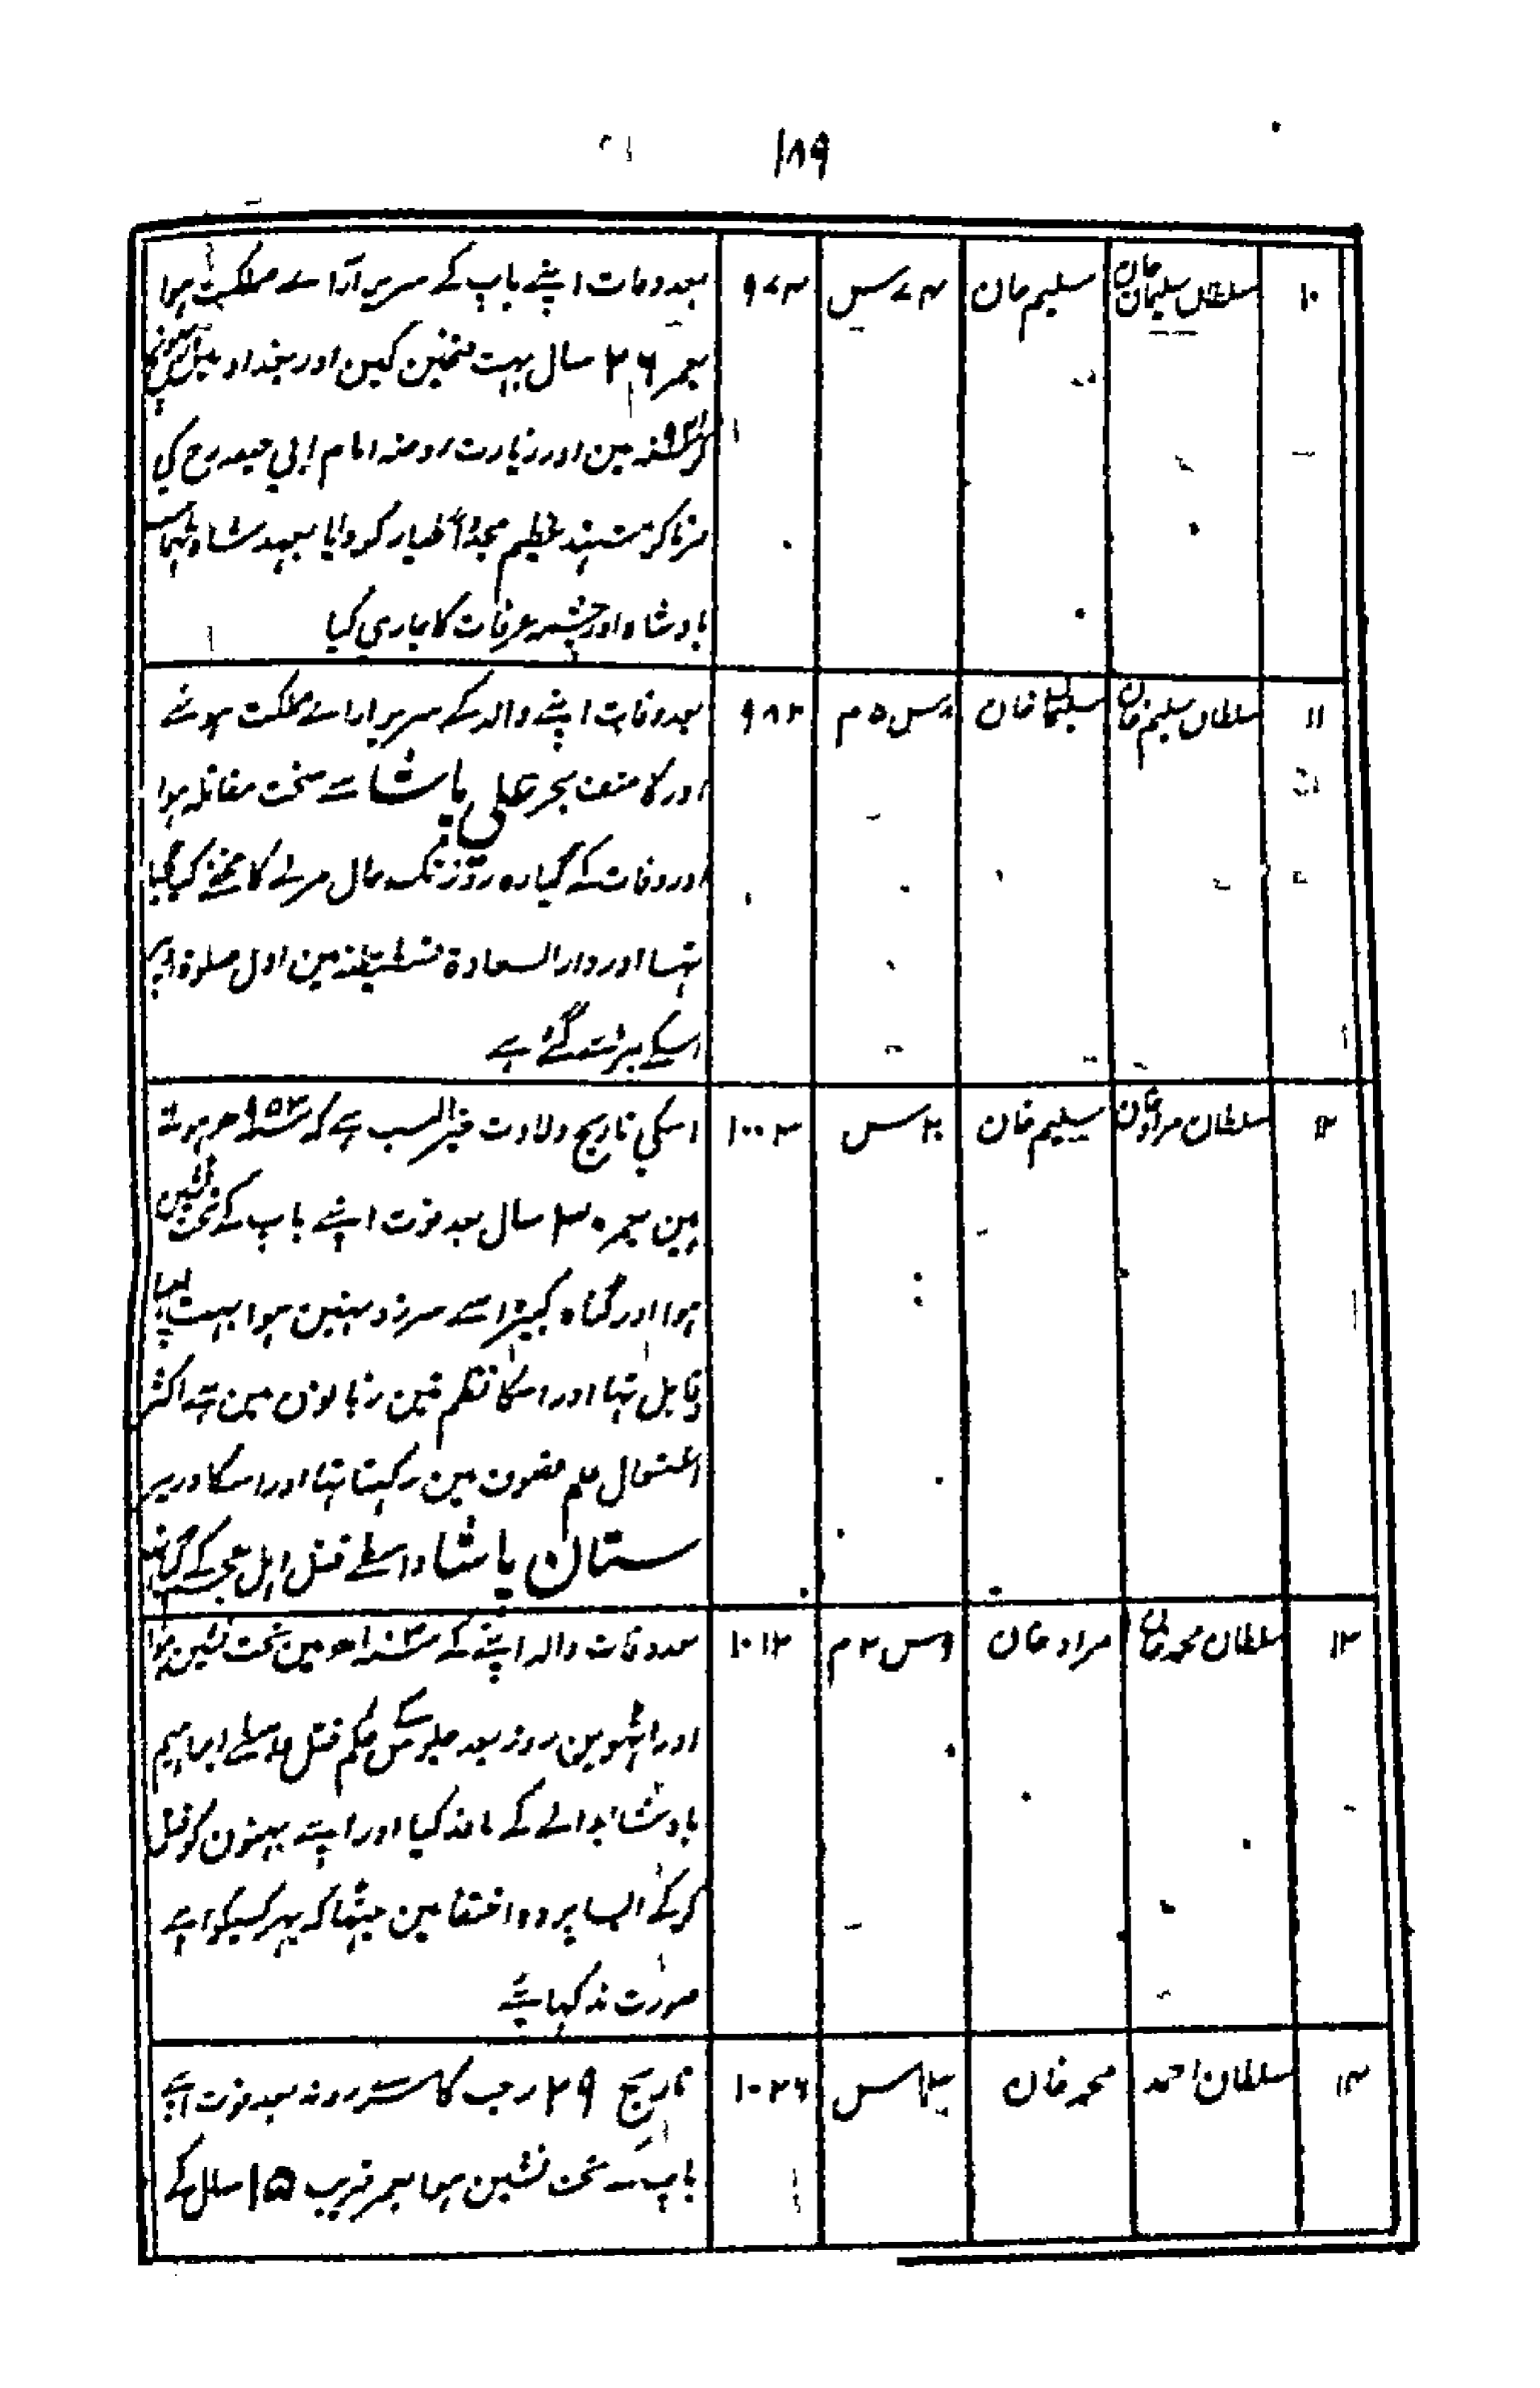 ۱۸۹
۱۰ سلطان سلیمان خان سلیم خان ۴۷ س ۹۷۴ بعد وفات اپنے باپ کے سریر آراے مملکت ہوا
بعمر ۲۶ سال بہت فتحین کین اور بغداد مین پہنچ
کر مین اور زیارت روضہ امام ابی حنیفہ رح کی
فرما کر مشہد عظیم مجدداً طیار کروایا بعہد شاہ طہماسب
بادشاہ اور چشمہ عرفات کا جاری کیا
۱۱ سلطان سلیم خان سلیمان خان ۸ س ۵ م ۹۸۲ بعد وفات اپنے والد کے سریر اراے مملکت ہوئے
اور بحر علی پاشا سے سخت مقاتلہ ہوا
اور وفات کہ گیارہ روز تک حال مرنے کا مخفی کیا گیا
تہا اور دار السعادة قسطنطنیہ مین اول صلوة
اسکے پر گئی ہے
۱۲ سلطان مراد خان سلیم خان ۲۰ س ۱۰۰۳ اسکی تاریخ ولادت خیر النسب ہے کہ ۹۵۳ھ ہوتے
ہین بعمر ۳۰ سال بعد فوت اپنے باپ کے تخت نشین
ہوا اور گناہ کبیرہ اس سے سرزد نہین ہوا بہت بڑا
قابل تہا اور اسکا نظم تین زبانون مین ہے اکثر
اشتغال علم تصوف مین رکہتا تہا اور اسکا وزیر
سنان پاشا واسطے قتل اہل عجم کے گیا
۱۳ سلطان محمد خان مراد خان ۹ س ۲ م ۱۰۱۲ بعد وفات والد اپنے کے ۱۰۰۳ھ مین تخت نشین ہوا
اور اٹہوین روز بعد جلوس کے حکم قتل واسطے ابراہیم
بادشاہ کے نافذ کیا اور اپنے بہنون کو قتل
کرکے ایسا پردہ اختفا مین بیٹہا کہ پہر کسیکو اپنے
صورت نہ دکہائے
۱۴ سلطان احمد محمد خان ۱۴ س ۱۰۲۶ تاریخ ۲۹ رجب کا روز بعد فوت اپنے
باپ کے تخت نشین ہوا بعمر قریب ۱۵ سال کے